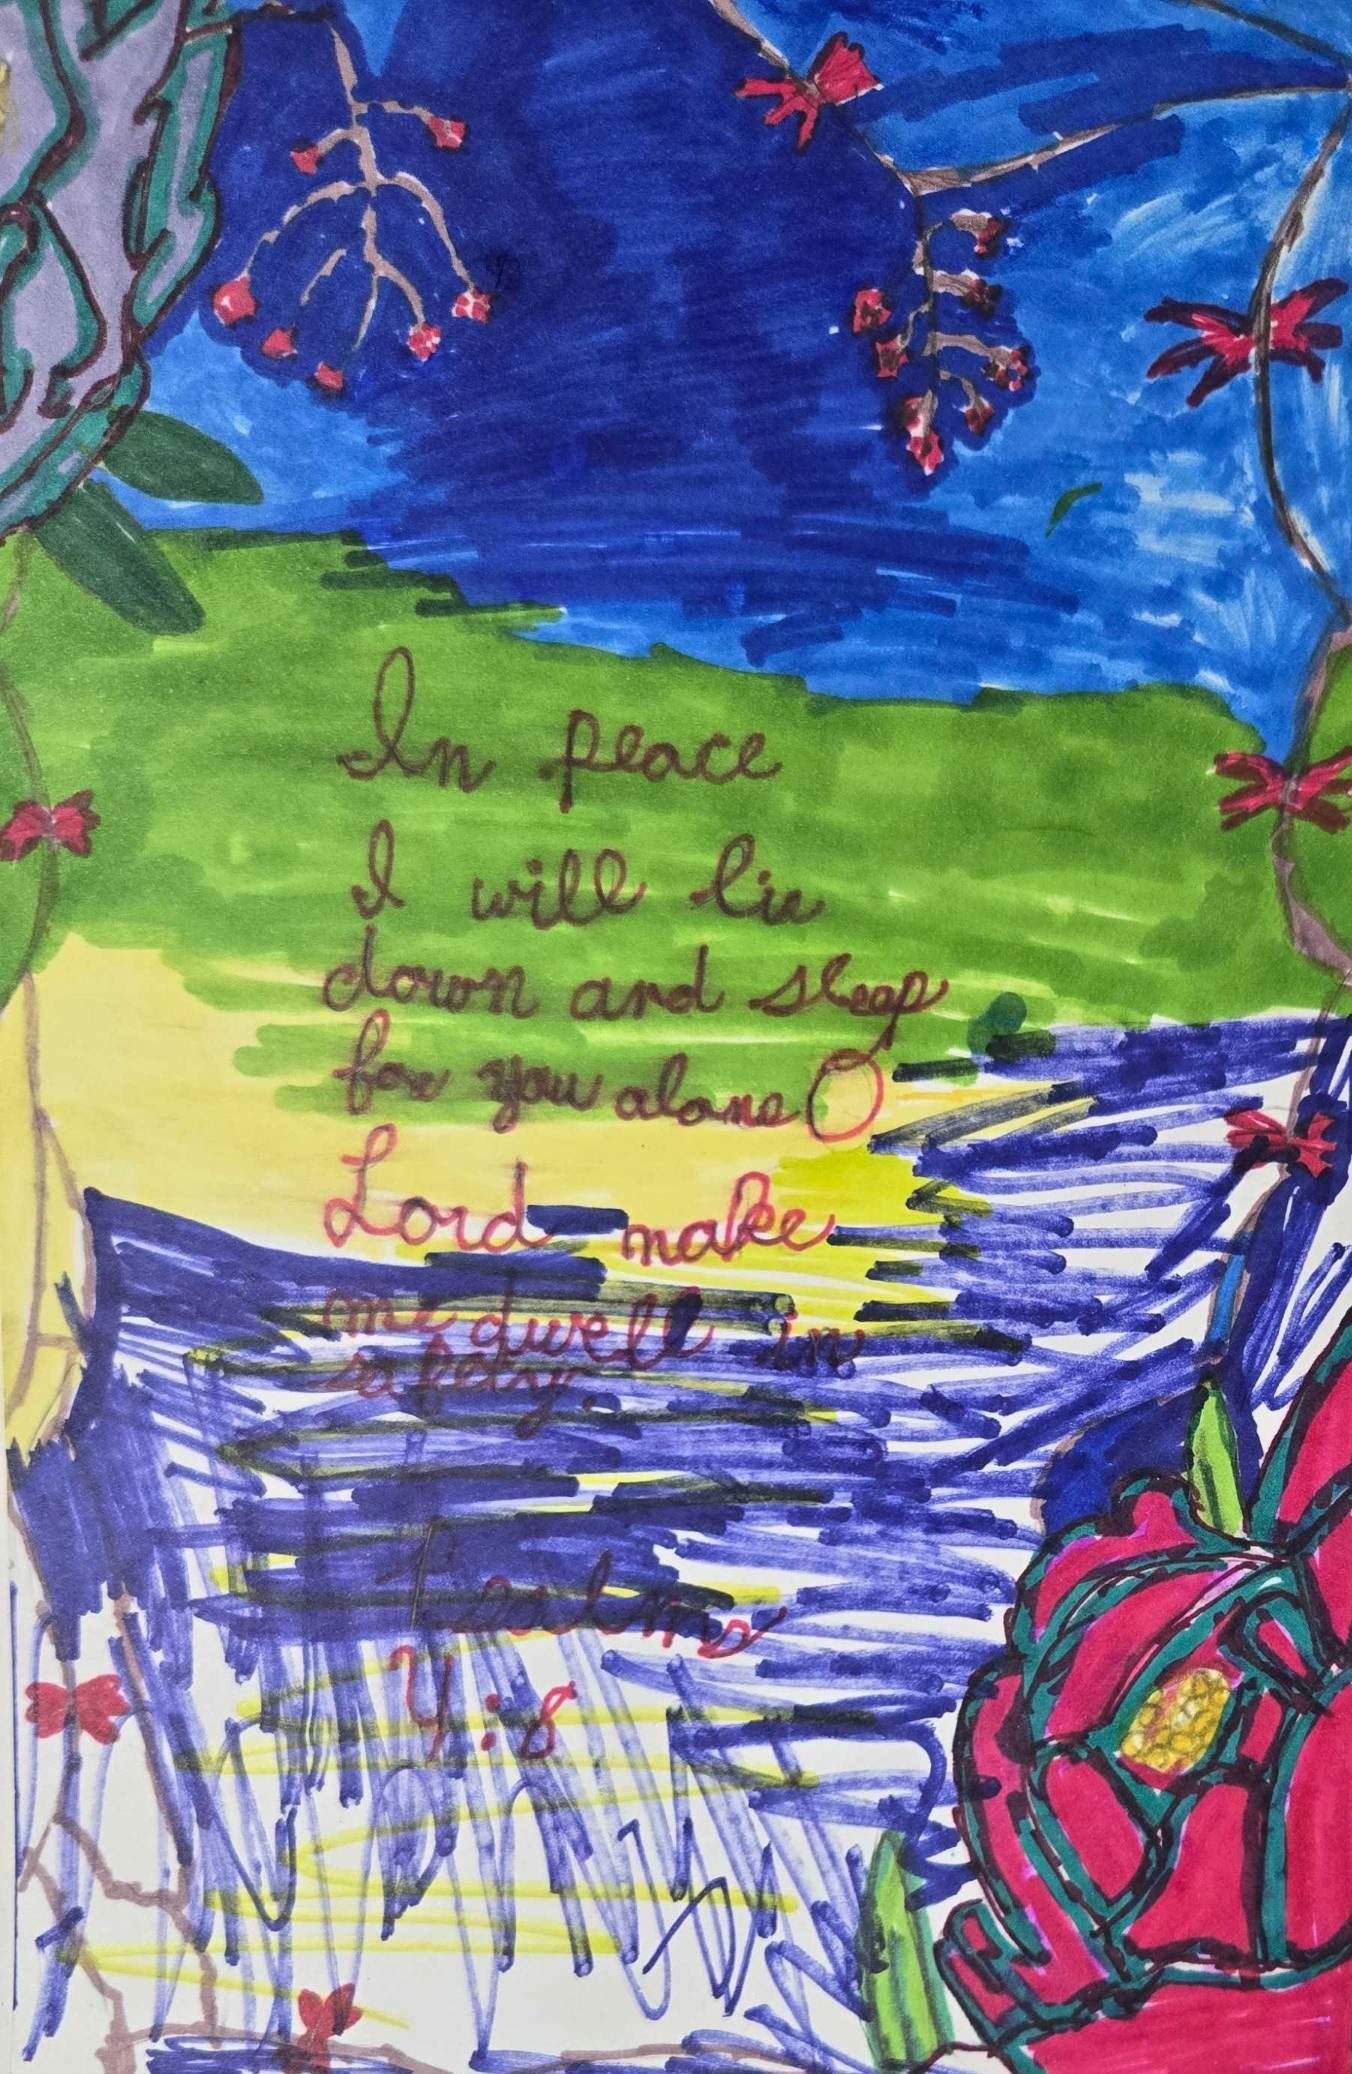 In peace
I will lie
down and sleep
for you alone O
Lord make
me dwell in
safety.
Psalms
4:8